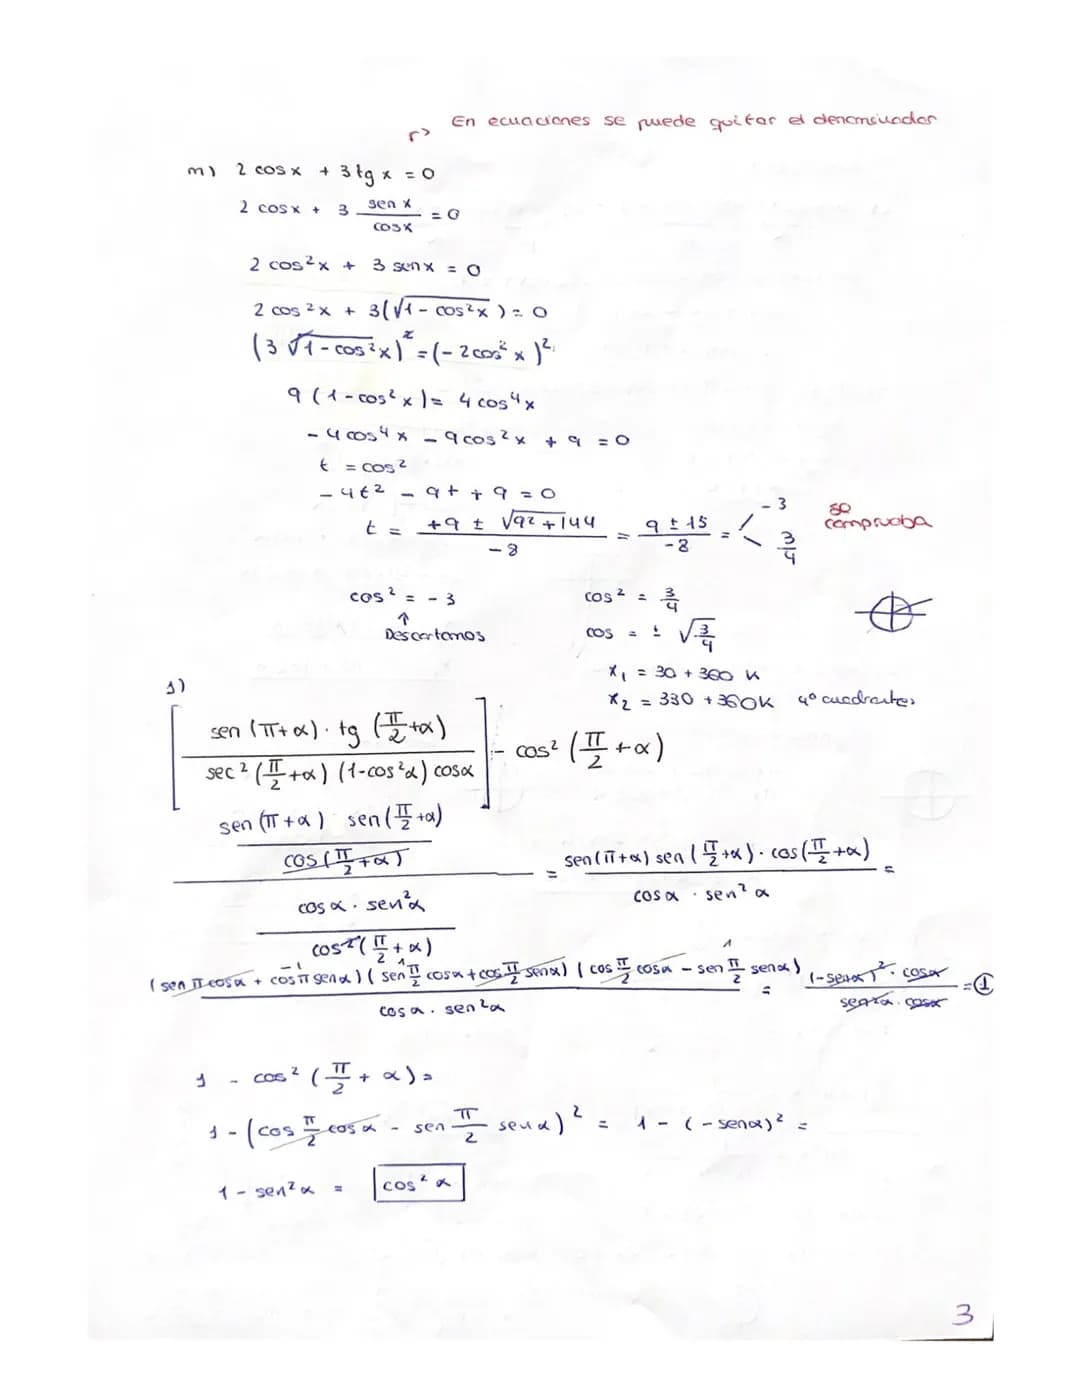 En ecuaciones se puede quitar el denominador
m) 2 cos x + 3 tg x = 0
2 cos x + 3 sen x / cos x = 0
2 cos²x + 3 sen x = 0
2 cos²x + 3(√1 - cos²x) = 0
(3 √1 - cos²x)² = (-2cos²x)²
9 (1 - cos²x) = 4 cos⁴x
- 4 cos⁴x - 9 cos²x + 9 = 0
t = cos²
- 4t² - 9t + 9 = 0
t = +9 ± √9² + 144 / -8 = 9 ± 15 / -8 = -3 3/4 se comprueba
cos² = - 3 cos² = 3/4
↑ Descartamos cos = ± √3/4
x₁ = 30 + 360 K
x₂ = 330 + 360K 4º cuadrante
1)
[sen (π+α) · tg (π/2 +α) / sec² (π/2 +α) (1-cos²α) cosα] - cos² (π/2 +α)
sen (π+α) sen (π/2 +α) / cos (π/2 +α) / cos α · sen²α / cos² (π/2 + α) = sen (π+α) sen (π/2 +α) · cos (π/2 +α) / cos α · sen² α =
(sen π cosα + cos π senα) (sen π/2 cosα + cos π/2 senα) (cos π/2 cosα - sen π/2 senα) / cos α · sen²α = (-senα)² · cosα / sen²α · cosα = 1
1 - cos² (π/2 + α) =
1 - (cos π/2 cos α - sen π/2 sen α)² = 1 - (- senα)² =
1 - sen²α = cos² α
3